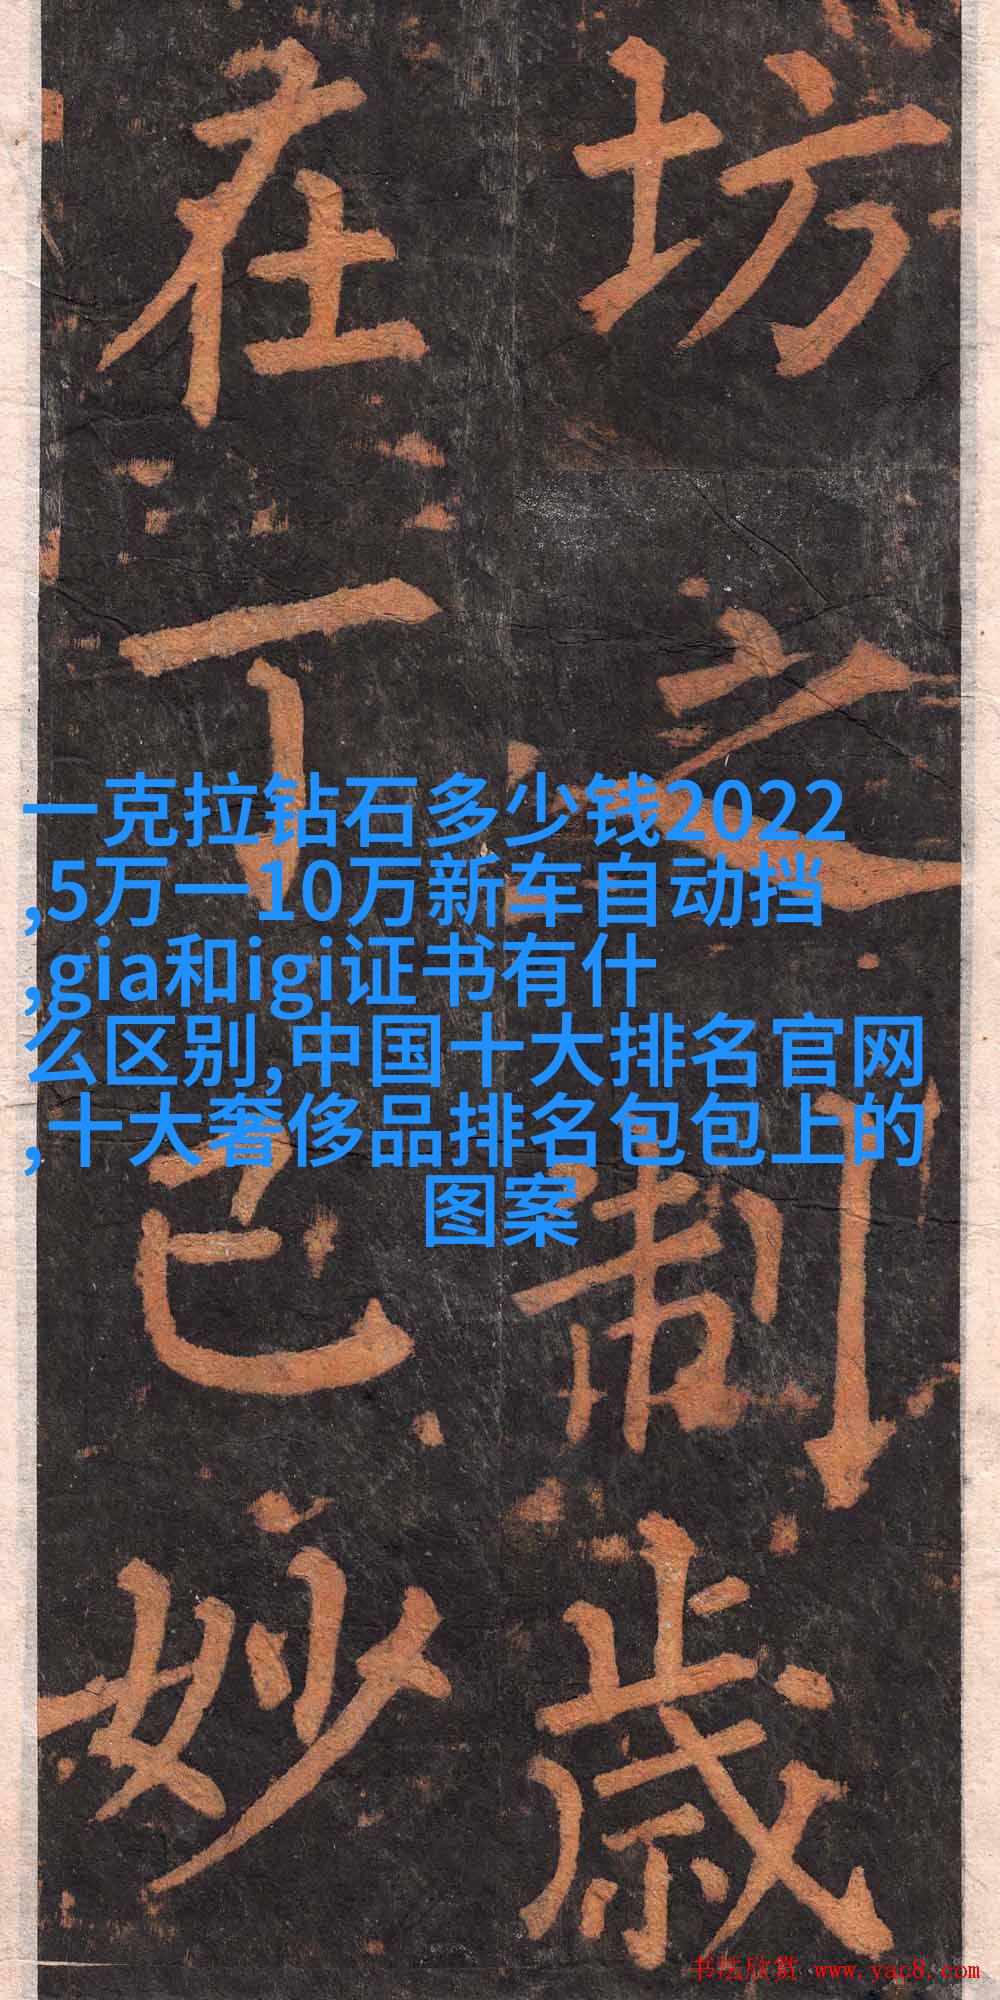 坊之制
歲
在丁已
妙
一克拉钻石多少钱2022
,5万一10万新车自动挡
,gia和igi证书有什
么区别,中国十大排名官网
,十大奢侈品排名包包上的
图案
书法欣赏 www.yac8.com